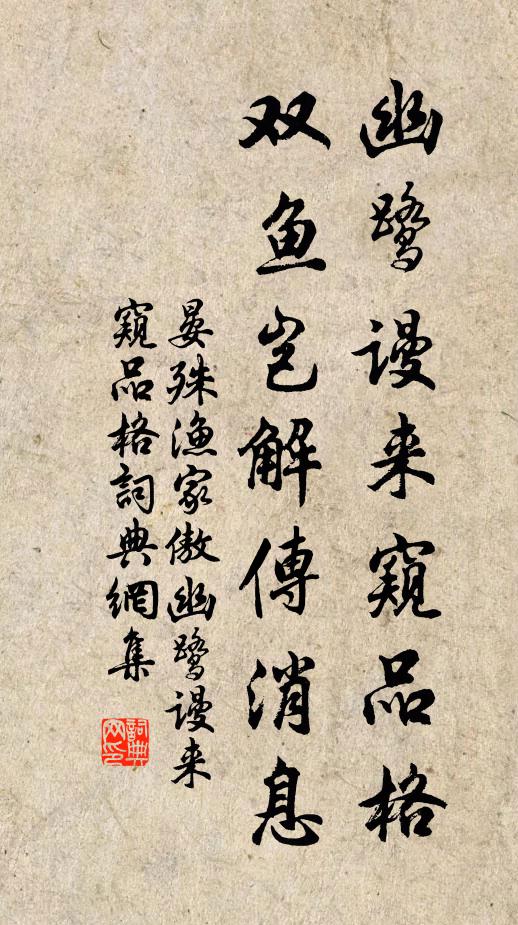 幽鹭谩来窥品格
双鱼岂解傳消息
晏殊渔家傲幽鹭谩来
窥品格詞典網集
詞典
网印